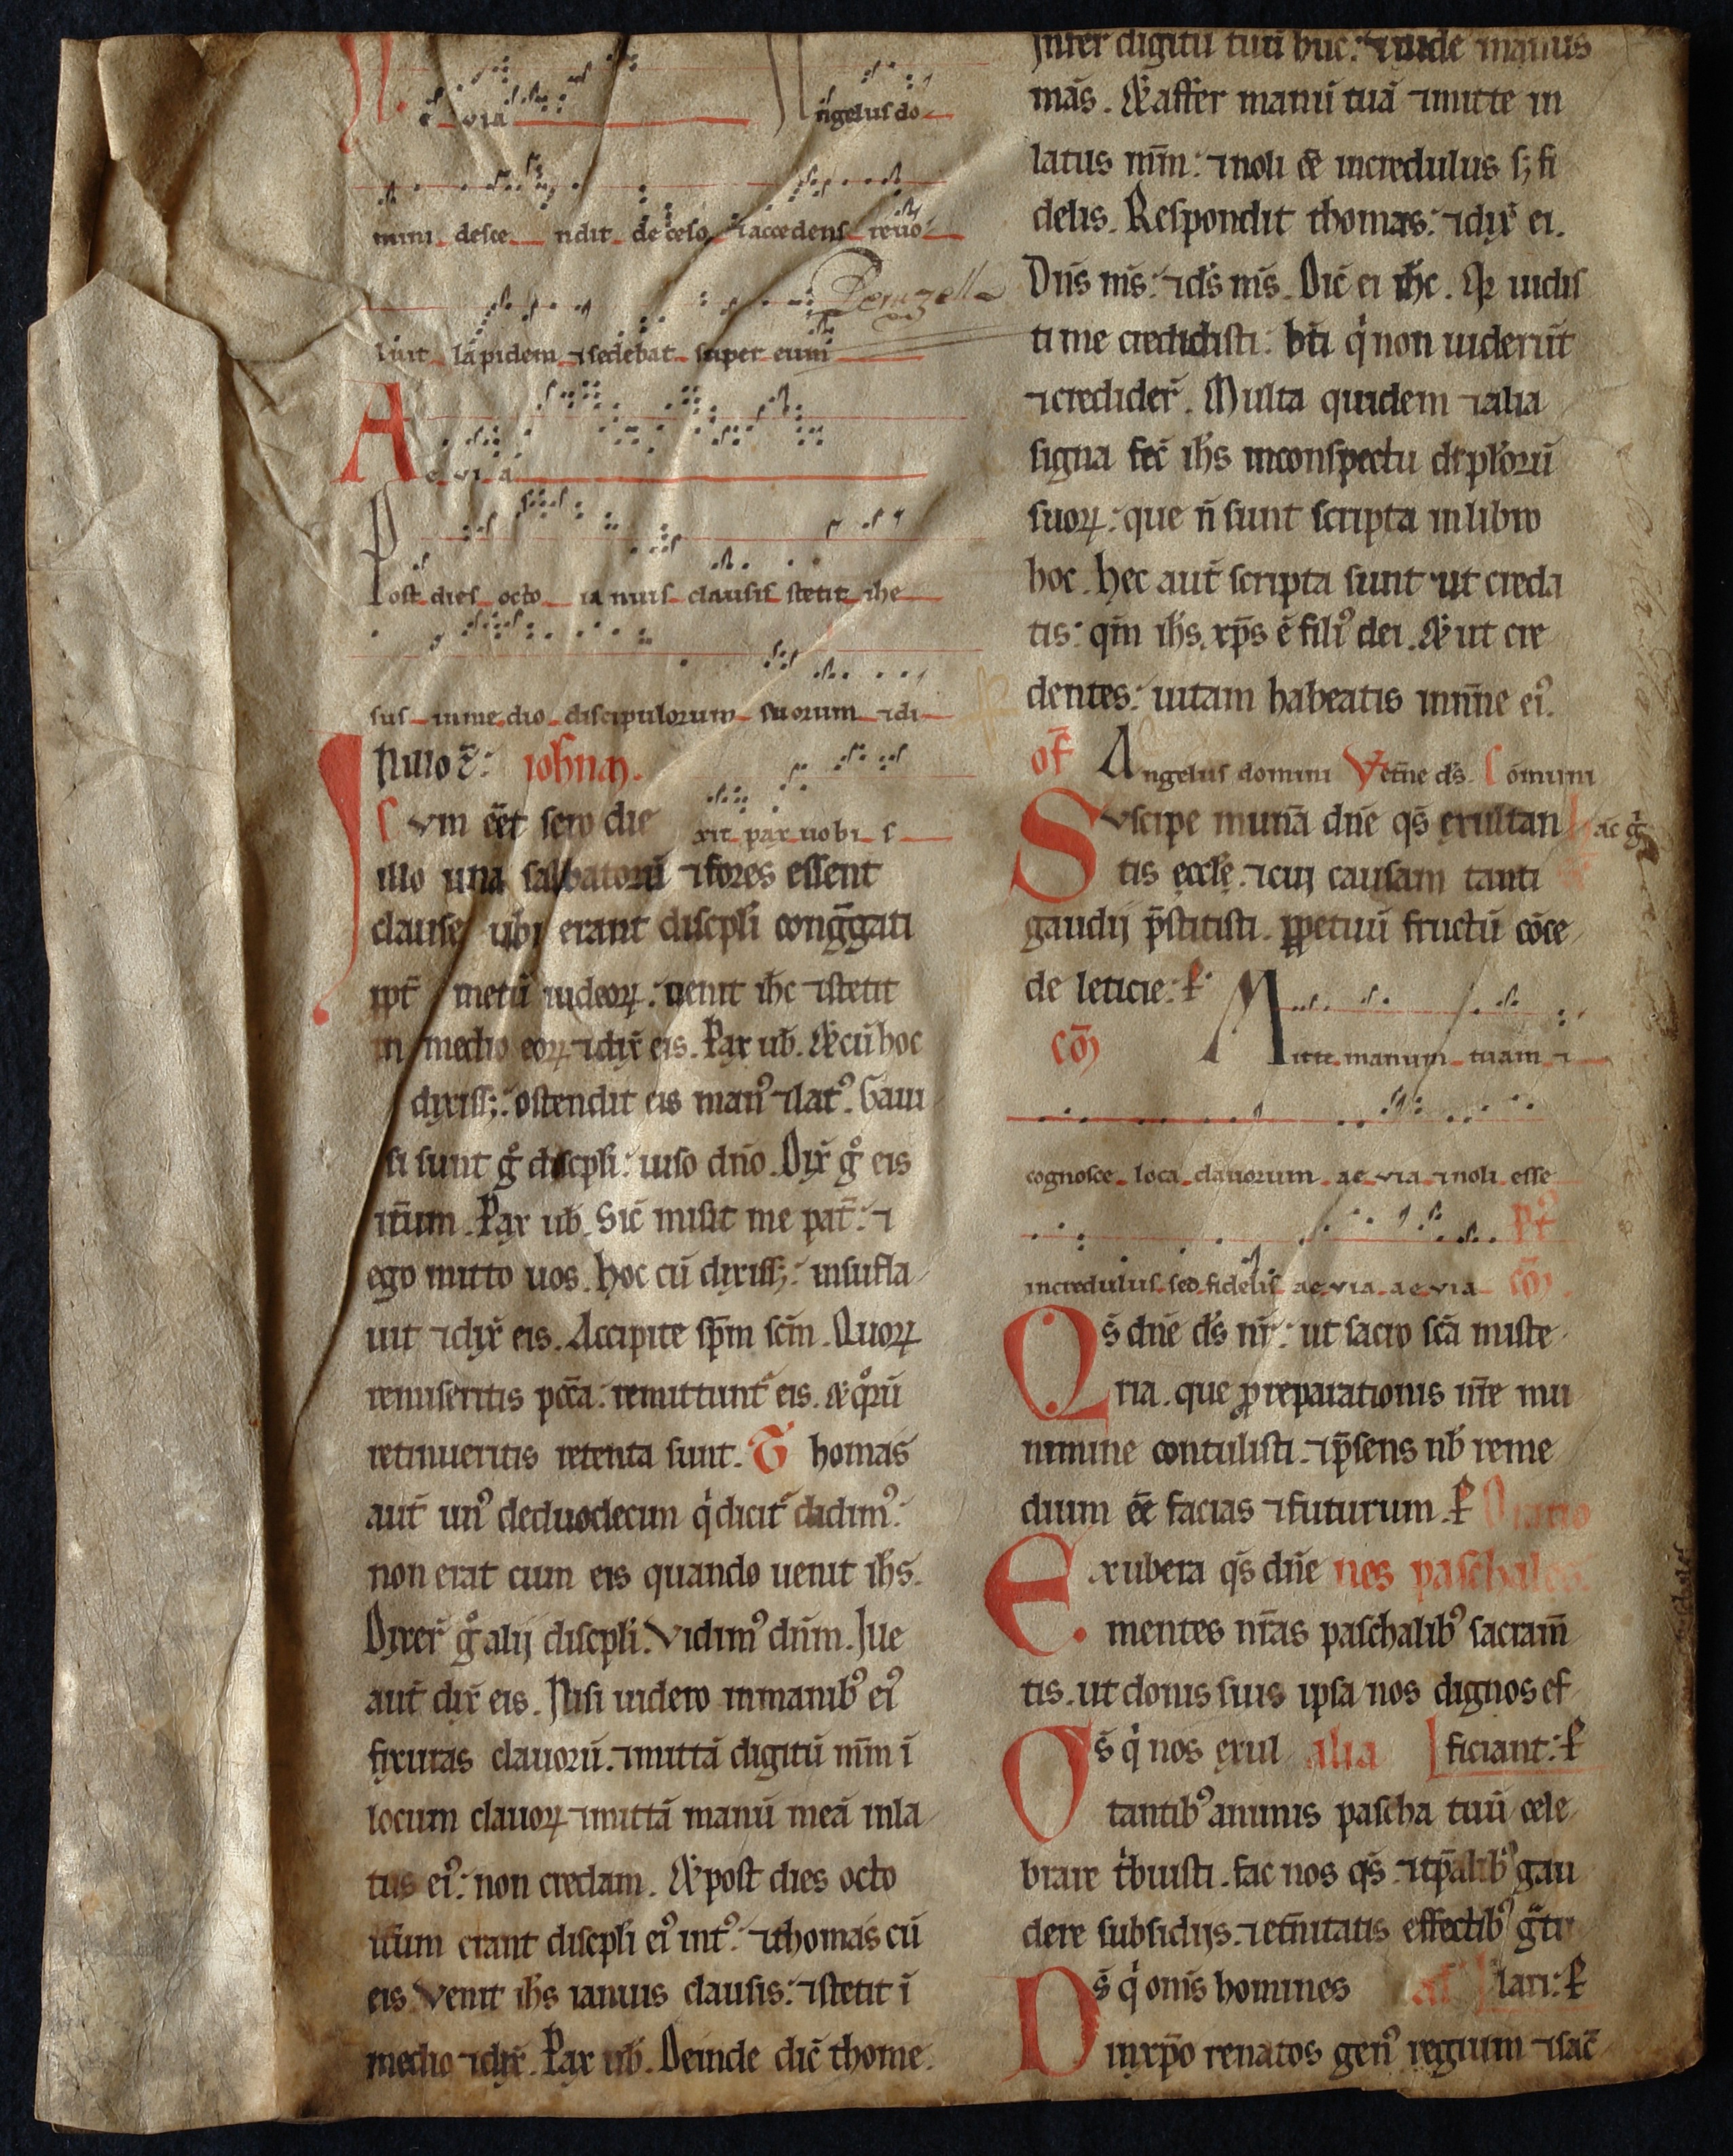 e via Angelus do
mini descendit de celo, ⁊ accedens reuo
luit lapidem ⁊ sedebat super eum
Demzella
Ae vi a
Post dies octo ianuis clausis stetit ihe
sus in medio discipulorum suorum ⁊ di
In illo t̄: ioħnm.
Cvm eēt sero die xit pax uobi s
illo una sabbatorū ⁊ fores essent
clause ubi erant discpl̓i congg̅ati
ppt̄ metū iudeoꝝ: uenit ihc ⁊ stetit
in medio eoꝝ ⁊ dix̄ eis. Pax ub̄. Et cū hoc
dixiss;: ostendit eis man⁹ ⁊ lat⁹. Gaui
si sunt g̊ discpl̓i: uiso dn̄o. Dix̄ g̊ eis
it̄um. Pax ub̄. Sic̄ misit me pat̄: ⁊
ego mitto uos. Hoc cū dixiss;: insufla
uit ⁊ dix̄ eis. Accipite sp̄m sc̄m. Quoꝝ
remiseritis pcc̄a: remittunt᷑ eis. Et q̊rū
retinueritis retenta sunt. Thomas
aut̄ un⁹ de duodecim q̇ dicit᷑ didim⁹:
non erat cum eis quando uenit ih̄s.
Dixer̄ g̊ alij discpl̓i. Vidim⁹ dn̄m. Ille
aut̄ dix̄ eis. Nisi uidero in manib⁹ ei⁹
fixuras clauorū. ⁊ mittā digitū m̄m ī
locum clauoꝝ ⁊ mittā manū meā in la
tus ei⁹: non credam. Et post dies octo
it̄um erant discpl̓i ei⁹ int⁹: ⁊ thomas cū
eis. Venit ih̄s ianuis clausis: ⁊ stetit ī
medio ⁊ dix̄. Pax ub̄. Deinde dic̄ thome.
Infer digitū tuū huc: ⁊ uide manus
mās. Et affer manū tuā ⁊ mitte in
latus m̄m: ⁊ noli eē incredulus s; fi
delis. Respondit thomas: ⁊ dix̄ ei.
Dn̄s m̄s: ⁊ ds̄ m̄s. Dic̄ ei ih̄c. Qꝛ uidis
ti me credidisti: bt̄i q̇ non uiderūt
⁊ credider̄. Multa quidem ⁊ alia
signa fec̄ ih̄s in conspectu discipl̓orū
suoꝝ: que n̄ sunt scripta in libro
hoc. Hec aut̄ scripta sunt ut creda
tis: qm̄ ih̄s xp̄s ē fili⁹ dei. Et ut cre
dentes: uitam habeatis in nn̄e ei⁹.
of̄ Angelus domini Vet̄ne ds̄. Com̄uni
Svscipe mun̄a dn̄e qs̄ exultan ac g̊
tis eccl̄e. ⁊ cui causam tanti
gaudij p̄stitisti. ꝑpetuū fructū cōce
de leticie: ꝑ
cō Mitte manum tuam ⁊
cognosce loca clauorum ae via ⁊ noli esse
incredulus sed fidelis ae via ae via pt⁹ cō.
Qs̄ dn̄e ds̄ nr̄: ut sacro sc̄a miste
ria. que ꝓ reparationis nr̄e mu
nimine contulisti. ⁊ p̄sens nb̄ reme
dium eē facias ⁊ futurum. ꝑ Oratio
Exubera qs̄ dn̄e nos paschales
mentes nr̄as paschalib⁹ sacram̄
tis. ut donis suis ipsa nos dignos ef
Ds̄ q̇ nos exul alia ficiant: ꝑ
tantib⁹ animis pascha tuū cele
brare t̓buisti. fac nos qs̄ ⁊ tp̄alib⁹ gau
dere subsidijs. ⁊ et̄nitatis effectib⁹ g̅tu
Ds̄ q̇ om̄s homines al lari: ꝑ
in xp̄o renatos gen⁹ regium ⁊ sac̄